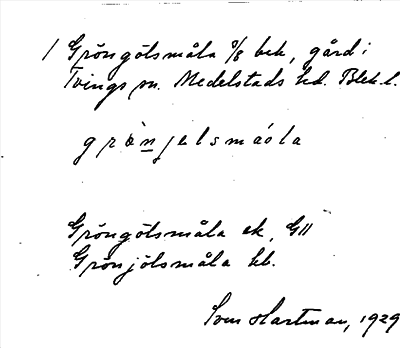 1 Gröngölsmåla 3/8 bek, gård i
Tvings sn. Medelstads hd. Blek. l.
grö̀n̲jelsmáola
Gröngölsmåla ek, GII
Grönjölsmåla kb.
Sven Hartman, 1929